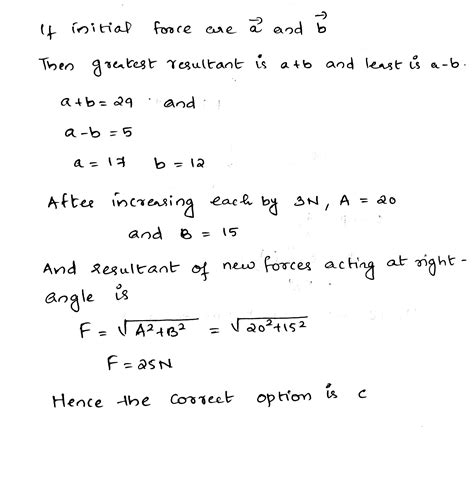 If initial force are a⃗ and b⃗
Then greatest resultant is a+b and least is a-b.
a+b = 29 and
a-b = 5
a = 17 b = 12
After increasing each by 3N, A = 20
and B = 15
And resultant of new forces acting at right-
angle is
F = √A²+B² = √20²+15²
F = 25N
Hence the correct option is c